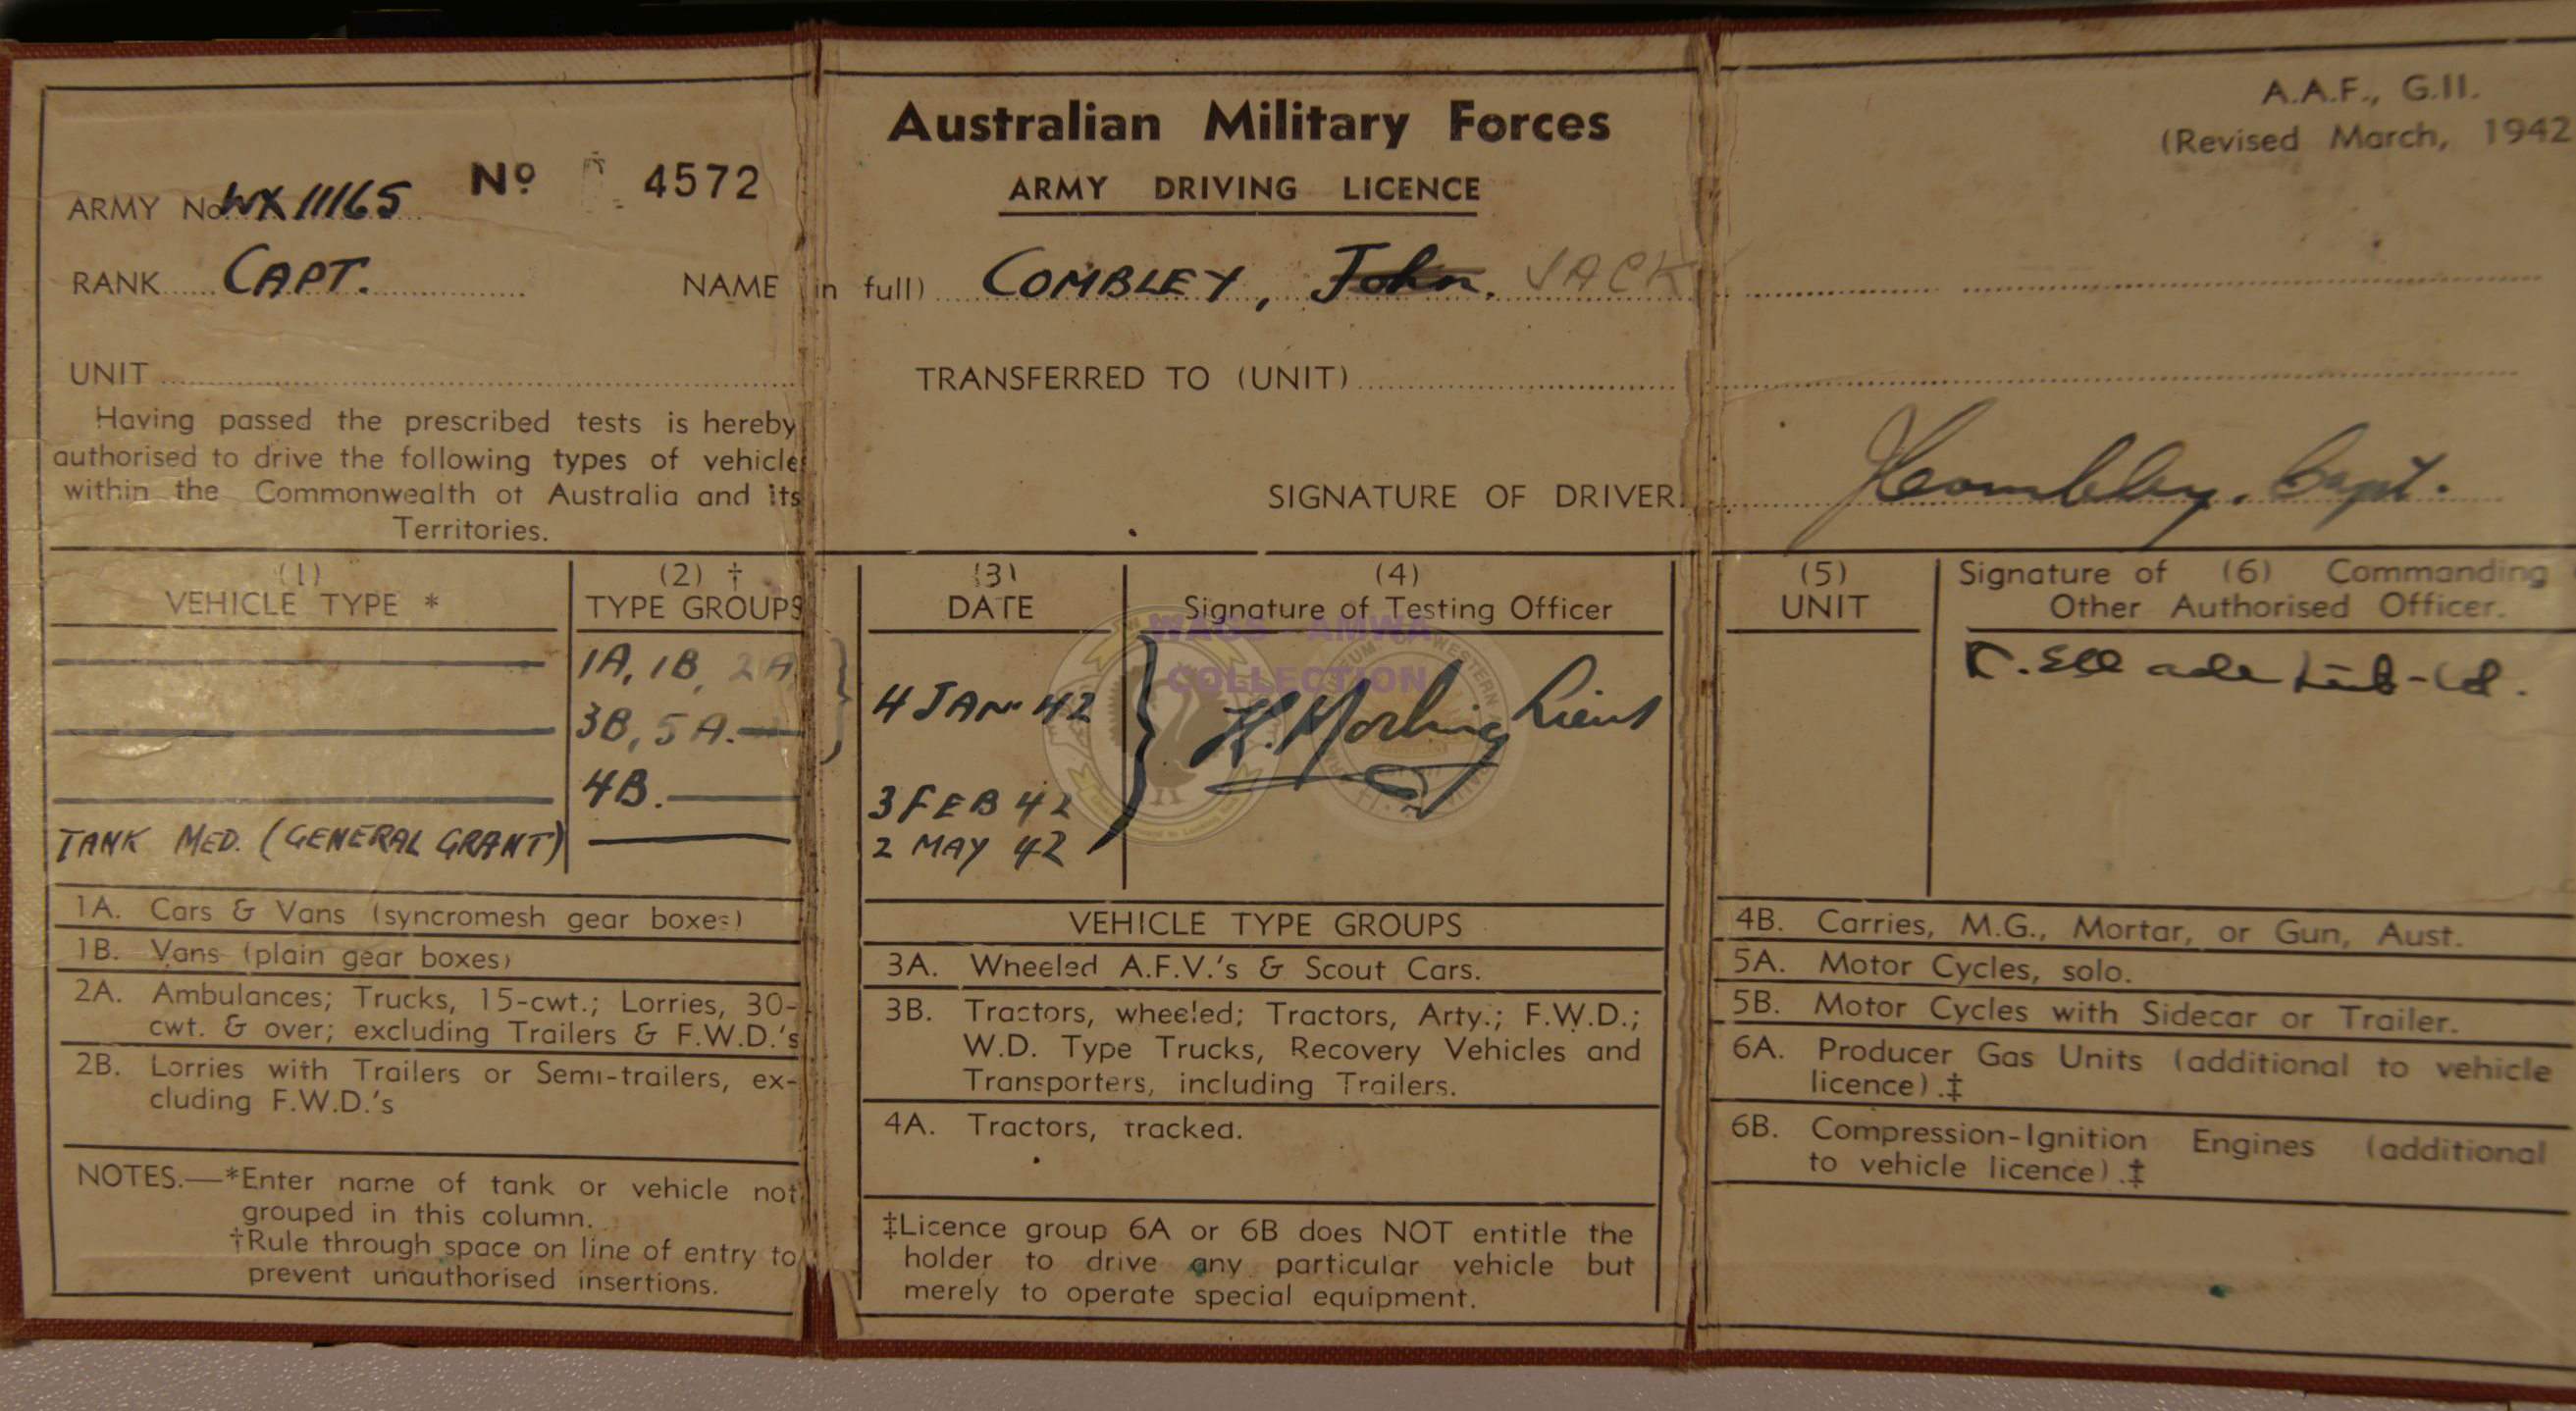 A.A.F., G.11.
(Revised March, 1942
Australian Military Forces
ARMY DRIVING LICENCE
ARMY No. WX 11165 No 4572
RANK CAPT. NAME (in full) COMBLEY, John. JACK
UNIT TRANSFERRED TO (UNIT)
Having passed the prescribed tests is hereby
authorised to drive the following types of vehicles
within the Commonwealth of Australia and its
Territories.
SIGNATURE OF DRIVER. JCombley. Capt.
(1)
VEHICLE TYPE *
(2) †
TYPE GROUPS
(3)
DATE
(4)
Signature of Testing Officer
(5)
UNIT
Signature of (6) Commanding
Other Authorised Officer.
1A, 1B, 2A,
3B, 5A.
4 JAN 42
Lieut
4B.
3 FEB 42
TANK MED. (GENERAL GRANT)
2 MAY 42
WAGS - AMWA
COLLECTION
1A. Cars & Vans (syncromesh gear boxes)
1B. Vans (plain gear boxes)
2A. Ambulances; Trucks, 15-cwt.; Lorries, 30-
cwt. & over; excluding Trailers & F.W.D.'s
2B. Lorries with Trailers or Semi-trailers, ex-
cluding F.W.D.'s
NOTES.—*Enter name of tank or vehicle not
grouped in this column.
†Rule through space on line of entry to
prevent unauthorised insertions.
VEHICLE TYPE GROUPS
3A. Wheeled A.F.V.'s & Scout Cars.
3B. Tractors, wheeled; Tractors, Arty.; F.W.D.;
W.D. Type Trucks, Recovery Vehicles and
Transporters, including Trailers.
4A. Tractors, tracked.
‡Licence group 6A or 6B does NOT entitle the
holder to drive any particular vehicle but
merely to operate special equipment.
4B. Carries, M.G., Mortar, or Gun, Aust.
5A. Motor Cycles, solo.
5B. Motor Cycles with Sidecar or Trailer.
6A. Producer Gas Units (additional to vehicle
licence).‡
6B. Compression-Ignition Engines (additional
to vehicle licence).‡